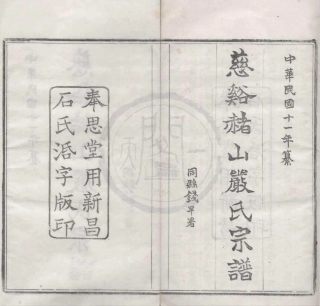 中華民國十一年纂
慈谿赭山嚴氏宗譜
同縣錢罕署
奉思堂用新昌
石氏活字版印